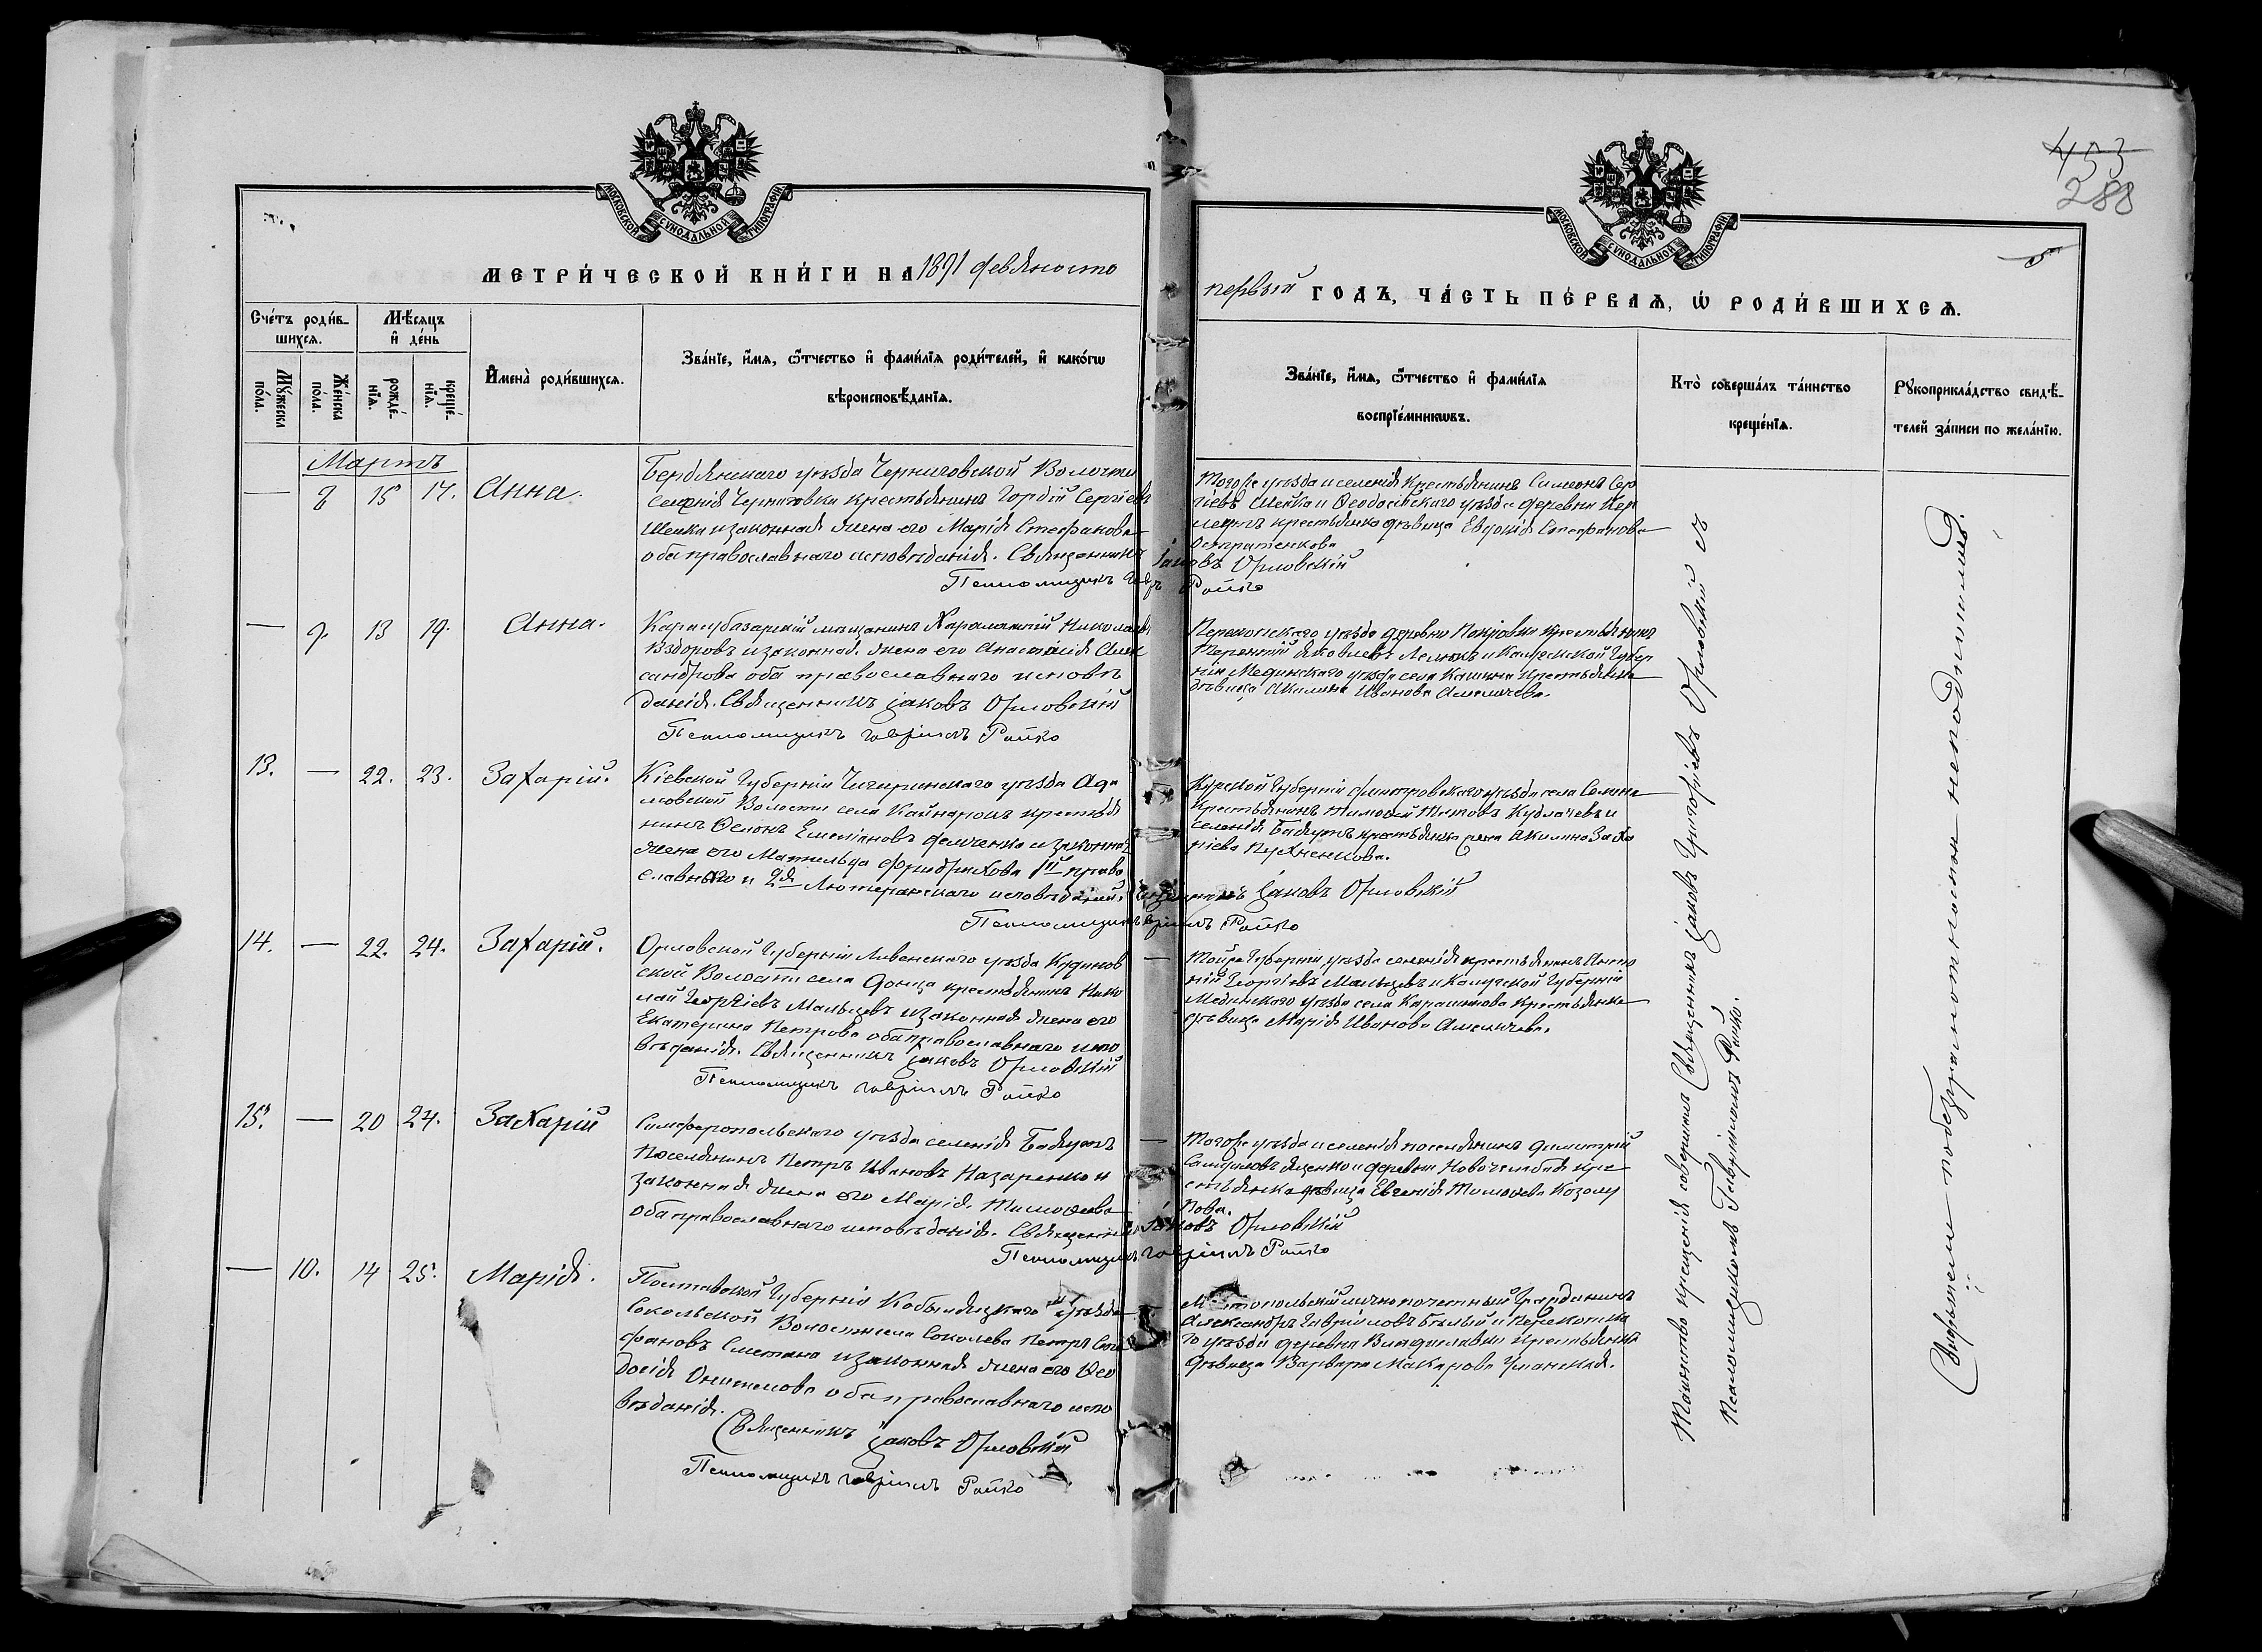 453
288
5
МОСКОВСКОЙ СѴНОДАЛЬНОЙ ТИПОГРАФІИ
МОСКОВСКОЙ СѴНОДАЛЬНОЙ ТИПОГРАФІИ
МЕТРИ́ЧЕСКОЙ КНИ́ГИ НА 1891 девяносто
первый ГОДЪ, ЧА́СТЬ ПЕ́РВАѦ, Ѡ РОДИ́ВШИХСѦ.
Сче́тъ роди́в-
шихсѧ.
Мꙋ́жеска
по́ла.
Же́нска
по́ла.
Мѣ́сѧцъ
и҆ де́нь
рожде́-
нїѧ.
креще́-
нїѧ.
И҆мена̀ роди́вшихсѧ.
Зва́нїе, и҆́мѧ, ѻ҆́тчество и҆ фами́лїѧ роди́телей, и҆ како́гѡ
вѣроисповѣ́данїѧ.
Зва́нїе, и҆́мѧ, ѻ҆́тчество и҆ фами́лїѧ
воспрїе́мникѡвъ.
Кто̀ соверша́лъ та́инство
креще́нїѧ.
Рꙋкоприкла́дство свидѣ́-
телей за́писи по жела́нїю.
Мартъ
— 8 15 17. Анна.
Бердянскаго уѣзда Черниговской Волости
селенія Черниговки крестьянинъ Гордій Сергіевъ
Шейка и законная жена его Марія Стефанова
оба православнаго исповѣданія. Священникъ Іаковъ Орловскій
Псаломщикъ Гавр Райко
Того же уѣзда и селенія крестьянинъ Симеонъ Сер
гіевъ Шейка и Ѳеодосійскаго уѣзда деревни
крестьянка дѣвица Евдокія Стефанова
— 9. 13 19. Анна.
Карасубазарскій мѣщанинъ Харалампій Николаевъ
Вздоровъ и законная жена его Анастасія Алек
сандрова оба православнаго исповѣ
данія. Священникъ Іаковъ Орловскій
Псаломщикъ Гавріилъ Райко
Перекопскаго уѣзда деревни Покровки крестьянинъ
Терентій Яковлевъ и Калужской Губер
ніи Медынскаго уѣзда села Кашина крестьянка
дѣвица Акилина Иванова Амеличева.
13. — 22. 23. Захарій.
Кіевской Губерніи Чигиринскаго уѣзда Ада
мовской Волости села Кайнаровъ крестья
нинъ Ѳеѡнъ Емеліановъ Демченко и законная
жена его Матильда Фридрихова 1й право
славнаго и 2я Лютеранскаго исповѣданій. Священникъ Іаковъ Орловскій
Псаломщикъ Гавріилъ Райко
Курской Губерніи Дмитровскаго уѣзда села
крестьянинъ Тимоѳей Титовъ Кудлачевъ и
селенія Баяутъ крестьянка Акилина Заха
ріева Пухненкова.
14. — 22. 24. Захарій.
Орловской Губерніи Ливенскаго уѣзда Кудинов
ской Волости села Донца крестьянинъ Нико
лай Георгіевъ Мальцевъ и законная жена его
Екатерина Петрова оба православнаго испо
вѣданія. Священникъ Іаковъ Орловскій
Псаломщикъ Гавріилъ Райко
— Той же Губерніи уѣзда селенія крестьянинъ Анто
ній Георгіевъ Мальцевъ и Калужской Губерніи
Медынскаго уѣзда села крестьянка
дѣвица Марія Иванова Амеличева.
15. — 20 24. Захарій
Симферопольскаго уѣзда селенія Баяутъ
поселянинъ Петръ Ивановъ Назаренко и
законная жена его Марія Тимоѳеева
оба православнаго исповѣданія. Священникъ Іаковъ Орловскій
Псаломщикъ Гавріилъ Райко
— Того же уѣзда и селенія поселянинъ Димитрій
Самуиловъ Яценко и деревни кре
стьянка дѣвица Евгенія Тимоѳеева Козолу
пова.
— 10. 14 25. Марія.
Полтавской Губерніи Кобылякскаго уѣзда
Сокольской Волости села Соколова Петръ Сте
фановъ Сметана и законная жена его Ѳео
досія Онисимова оба православнаго испо
вѣданія.
Священникъ Іаковъ Орловскій
Псаломщикъ Гавріилъ Райко
личнопочетный Гражданинъ
Александръ Гавріиловъ Бѣлый и Перекопска
го уѣзда деревни Владиславки крестьянка
дѣвица Варвара Макарова Уманская.
Таинство крещенія совершилъ Священникъ Іаковъ Григоріевъ Орловскій съ
Псаломщикомъ Гавріиломъ Райко.
Свидѣтели по безграмотности не подписались.